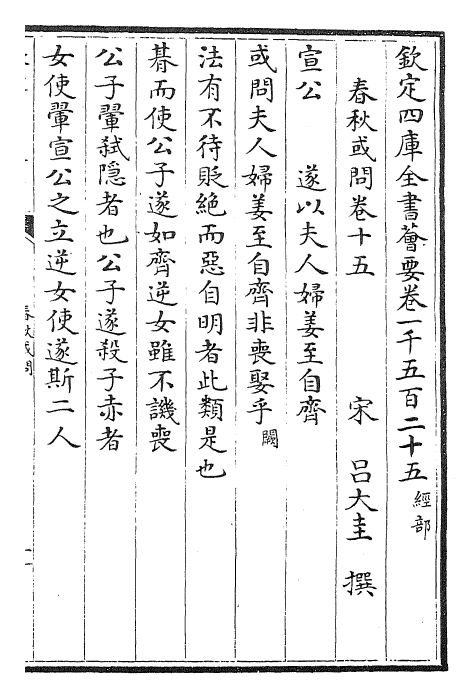 欽定四庫全書薈要卷一千五百二十五 經部
春秋或問卷十五 宋 呂大圭 撰
宣公 遂以夫人婦姜至自齊
或問夫人婦姜至自齊非喪娶乎 闕
法有不待貶絶而惡自明者此類是也
朞而使公子遂如齊逆女雖不譏喪
公子翬弑隠者也公子遂殺子赤者
女使翬宣公之立逆女使遂斯二人
春秋或問